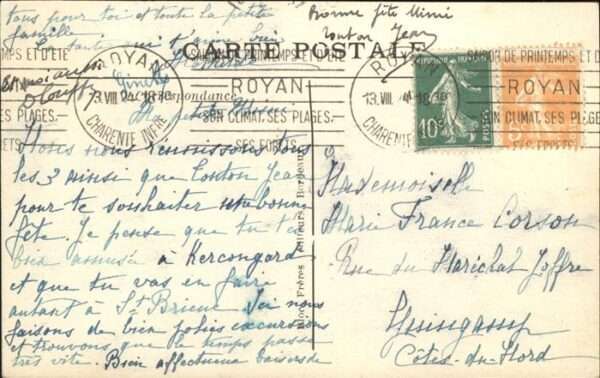 tous pour toi et toute la petite
famille
Bonne fête Mimi
tonton Jean
CARTE POSTALE
Correspondance
ROYAN
13.VIII 18 30
CHARENTE INFRE
ROYAN
SON CLIMAT. SES PLAGES.
SES FORETS
ROYAN
13.VIII
CHARENTE
SAISON DE PRINTEMPS ET D'ETE
ROYAN
SON CLIMAT. SES PLAGES.
SES FORETS
10c
POSTES
Ma petite Mimi
Nous nous réunissons tous
les 3 ainsi que tonton Jean
pour te souhaiter une bonne
fête. Je pense que tu t'es
bien amusée à Kercongard
et que tu vas en faire
autant à St Brieuc Ici nous
faisons de bien jolies excursions
et trouvons que le temps passe
très vite. Bien affectueux baisers de
Mademoiselle
Marie France Corson
Rue du Maréchal Joffre
Guingamp
Côtes-du-Nord